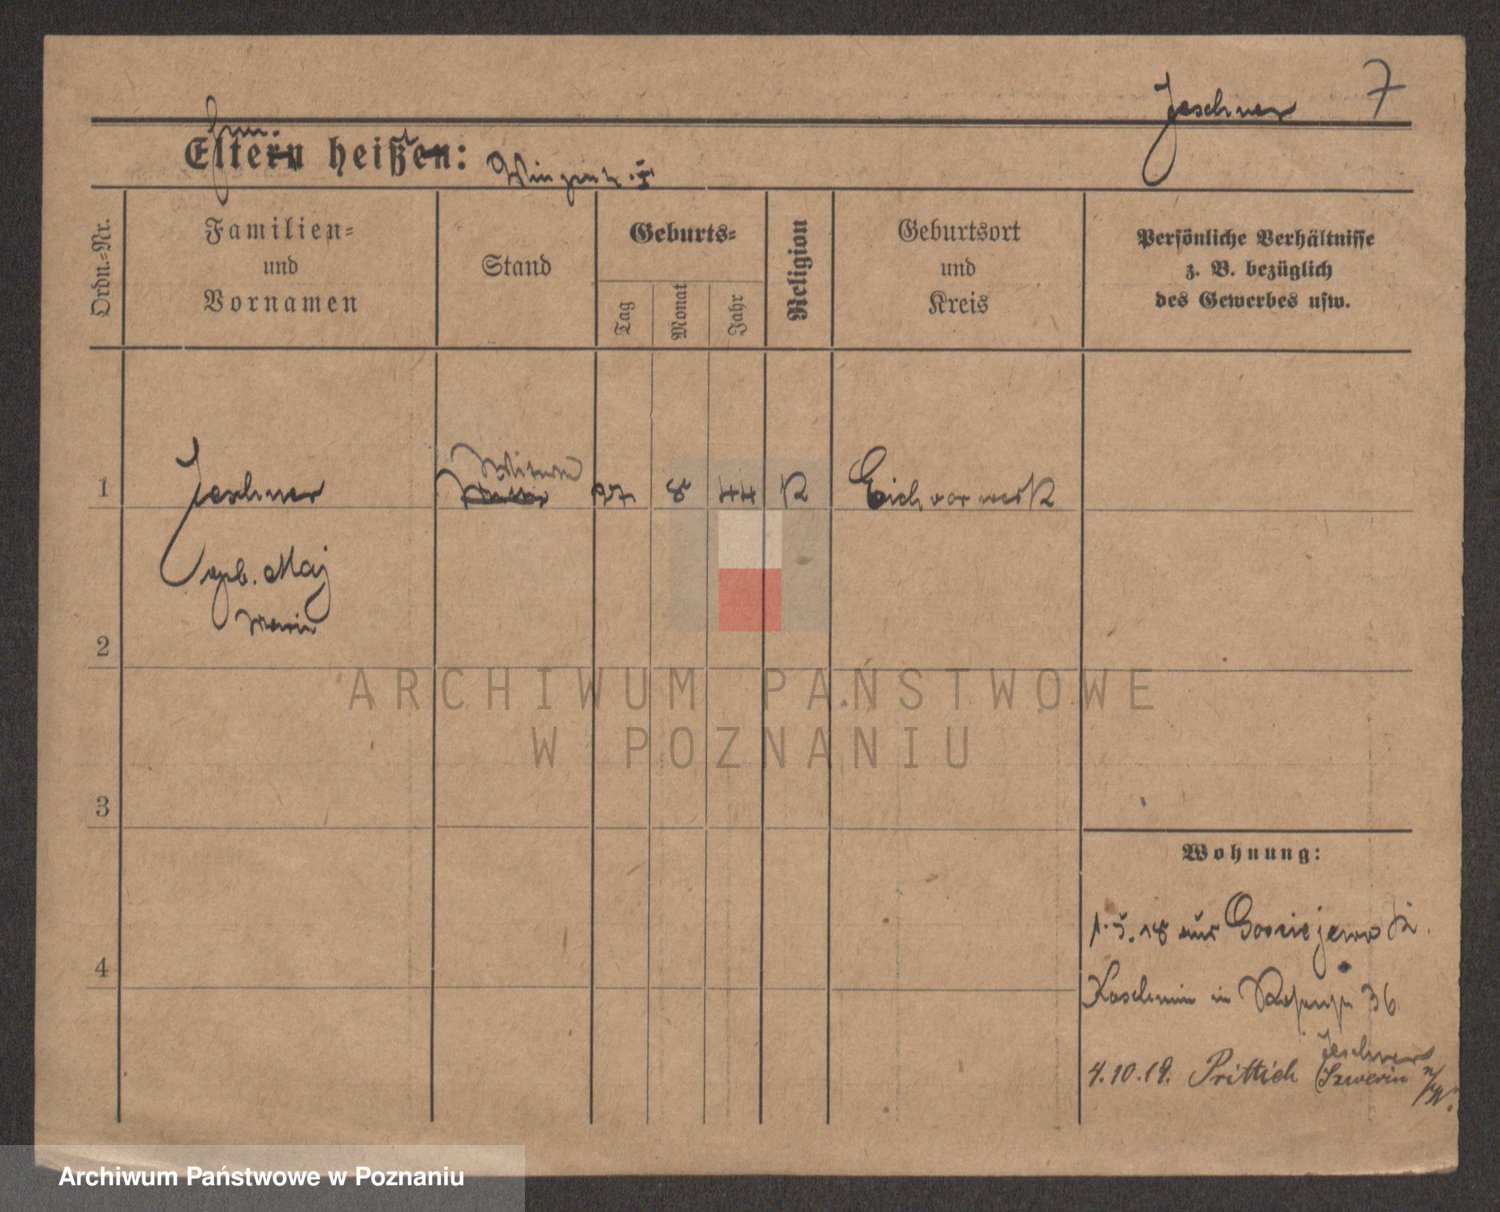 Jeschner 7
Eltern heißen:
Ordn.-Nr.
Familien-
und
Vornamen
Stand
Geburts-
Tag
Monat
Jahr
Religion
Geburtsort
und
Kreis
Persönliche Verhältnisse
z. B. bezüglich
des Gewerbes usw.
1 Jeschner Witwe 27 8 44 K Eichvorwerk
geb. Maj
Marie
2
3
4
Wohnung:
1. 5. 18 aus Gosciejewo K.
Koschmin in 36
Jeschner
4.10.19. Prittich
ARCHIWUM PAŃSTWOWE
W POZNANIU
Archiwum Państwowe w Poznaniu